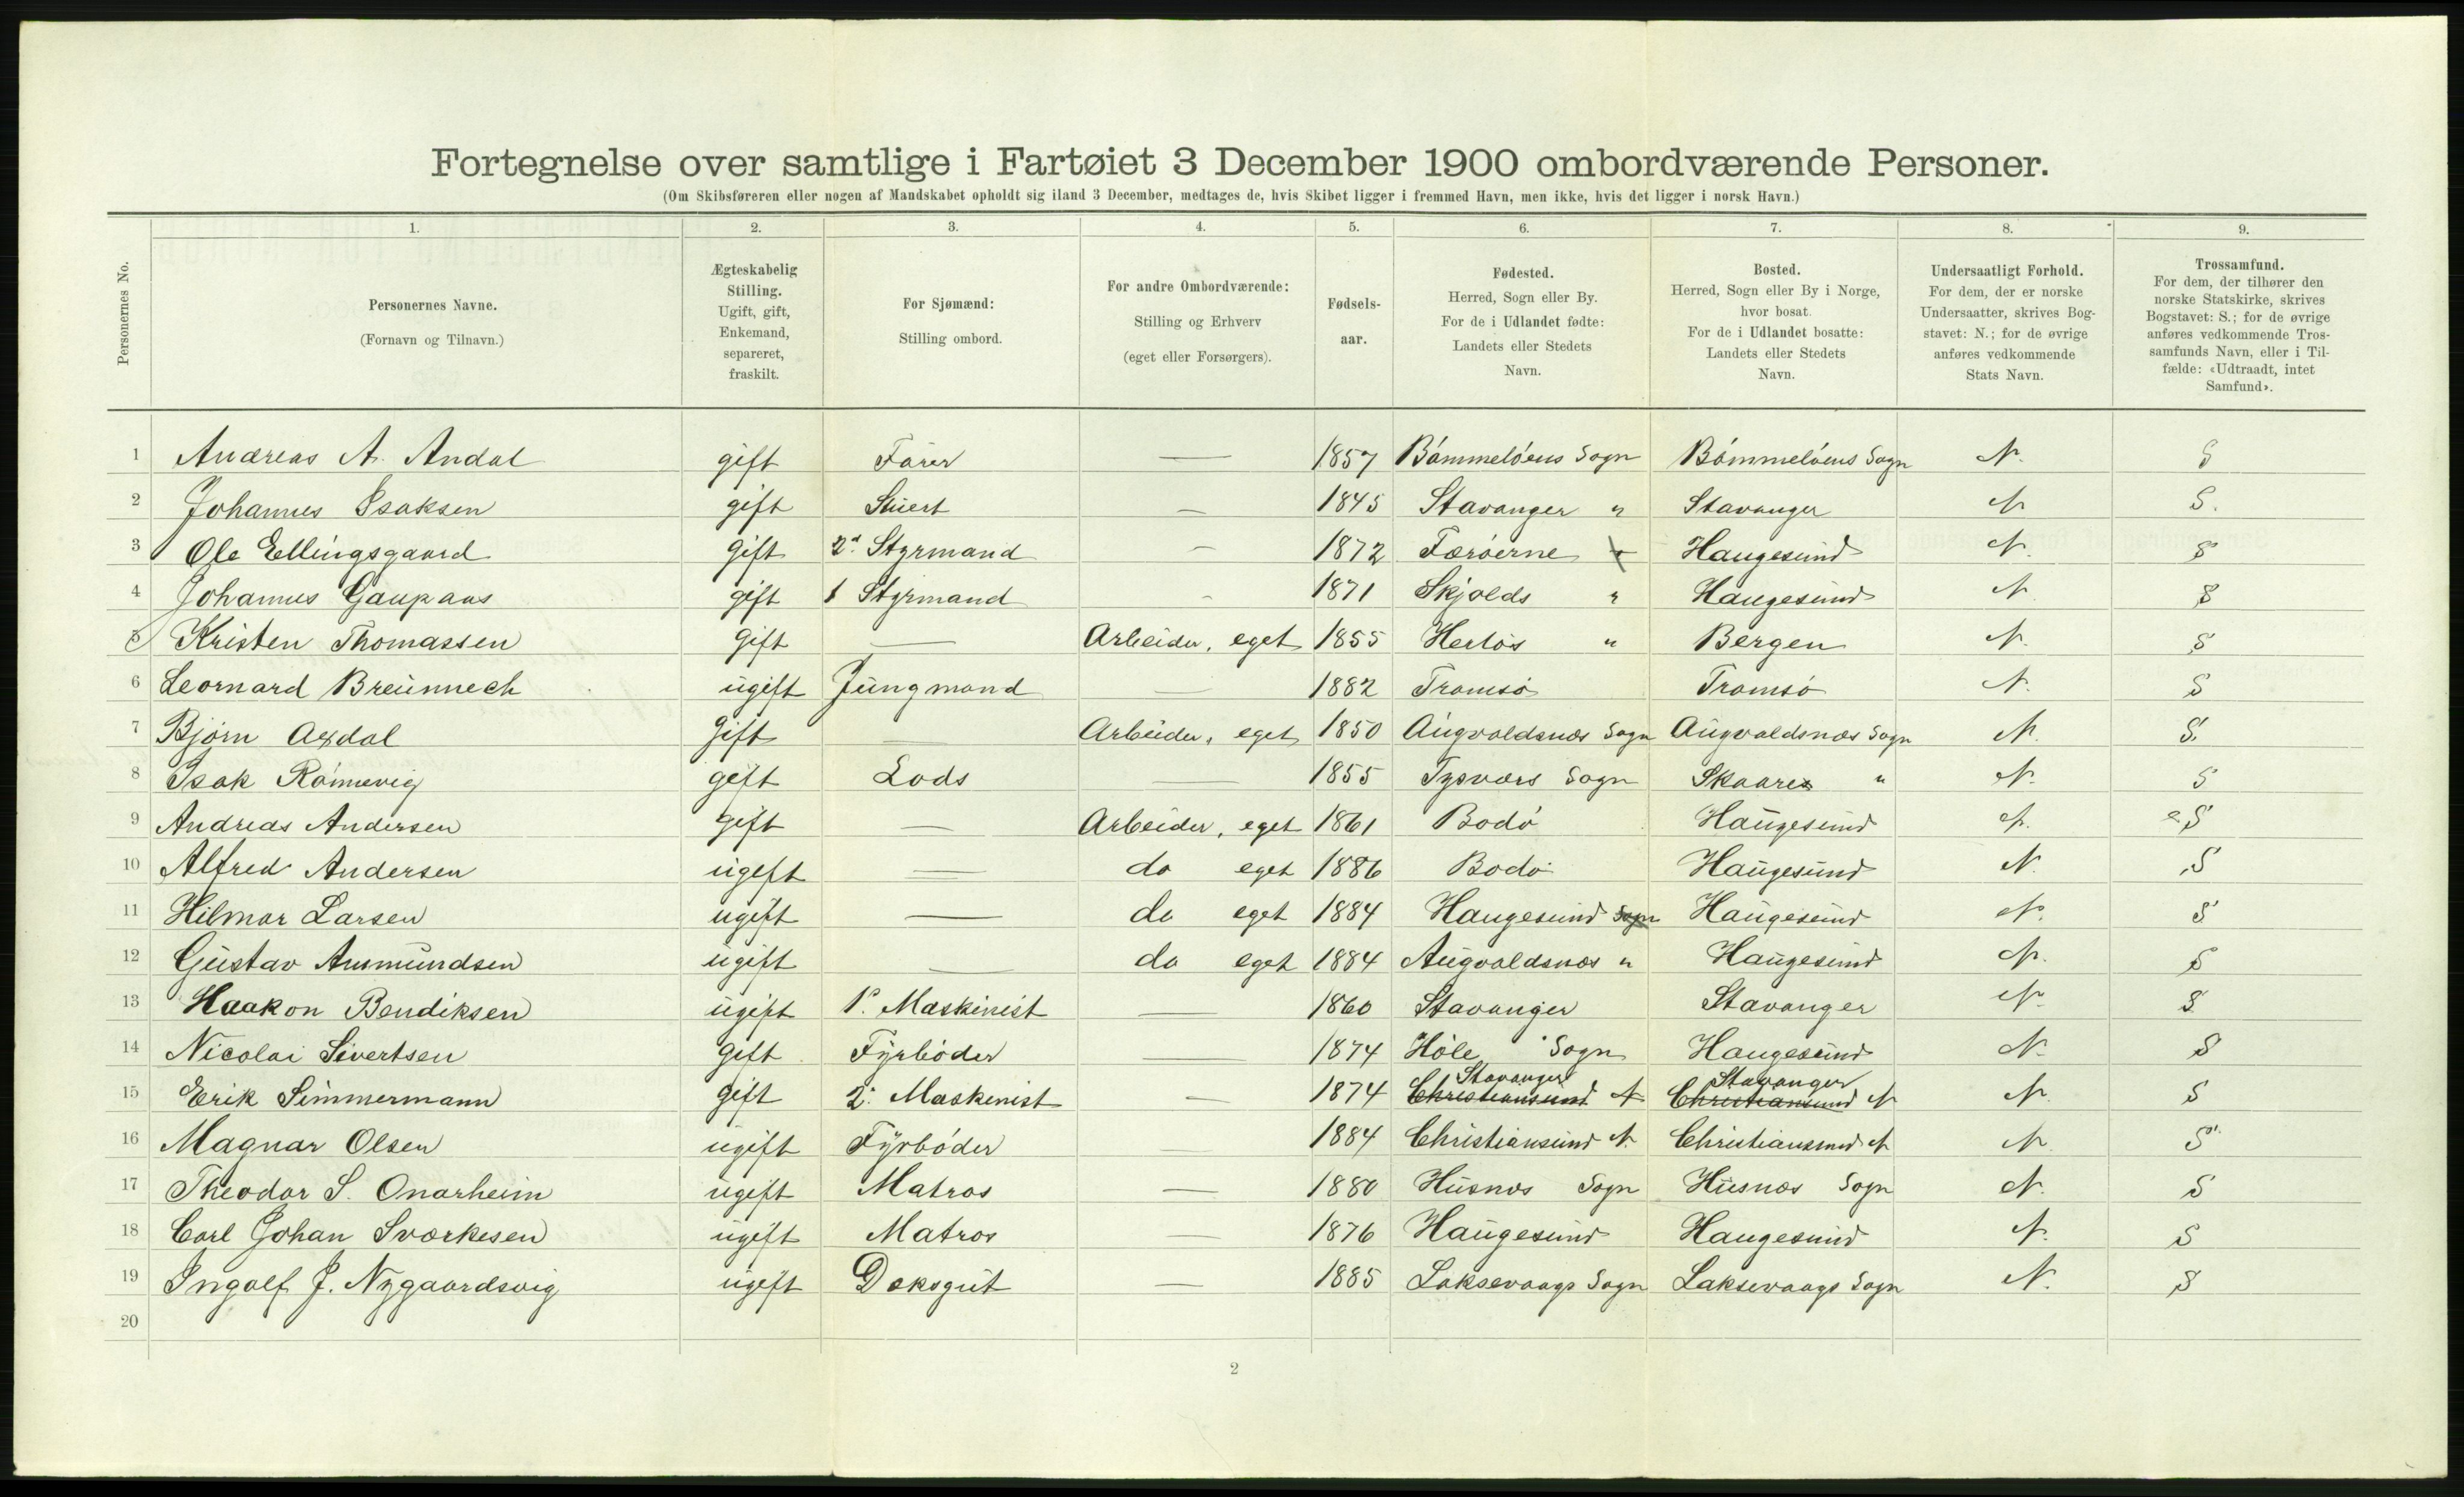 Fortegnelse over samtlige i Fartøiet 3 December 1900 ombordværende Personer.
(Om Skibsføreren eller nogen af Mandskabet opholdt sig iland 3 December, medtages de, hvis Skibet ligger i fremmed Havn, men ikke, hvis det ligger i norsk Havn.)
Personernes No.
1. 2. 3. 4. 5. 6. 7. 8. 9.
Personernes Navne.
(Fornavn og Tilnavn.)
Ægteskabelig
Stilling.
Ugift, gift,
Enkemand,
separeret,
fraskilt.
For Sjømænd:
Stilling ombord.
For andre Ombordværende:
Stilling og Erhverv
(eget eller Forsørgers).
Fødsels-
aar.
Fødested.
Herred, Sogn eller By.
For de i Udlandet fødte:
Landets eller Stedets
Navn.
Bosted.
Herred, Sogn eller By i Norge,
hvor bosat.
For de i Udlandet bosatte:
Landets eller Stedets
Navn.
Undersaatligt Forhold.
For dem, der er norske
Undersaatter, skrives Bog-
stavet: N.; for de øvrige
anføres vedkommende
Stats Navn.
Trossamfund.
For dem, der tilhører den
norske Statskirke, skrives
Bogstavet: S.; for de øvrige
anføres vedkommende Tros-
samfunds Navn, eller i Til-
fælde: «Udtraadt, intet
Samfund».
1 Andreas A. Andal gift Fører — 1857 Bømmeløens Sogn Bømmeløens Sogn N. S
2 Johannes Isaksen gift Stuert — 1845 Stavanger " Stavanger N S.
3 Ole Ellingsgaard gift 2d Styrmand — 1872 Færøerne Haugesund N. S
4 Johannes Gaupaas gift 1 Styrmand - 1871 Skjolds " Haugesund N S
5 Kristen Thomassen gift — Arbeider, eget 1855 Herløs " Bergen N. S
6 Leornard Breunnech ugift Jungmand — 1882 Tromsø Tromsø N. S
7 Bjørn Axdal gift — Arbeider, eget 1850 Augvaldsnæs Sogn Augvaldsnæs Sogn N. S
8 Isak Rømmevig gift Lods — 1855 Tysværs Sogn Skaare " N. S
9 Andreas Andersen gift — Arbeider, eget 1861 Bodø Haugesund N. S
10 Alfred Andersen ugift — do eget 1886 Bodø Haugesund N. S
11 Hilmar Larsen ugift — do eget 1884 Haugesund Sogn Haugesund N. S
12 Gustav Aumundsen ugift — do eget 1884 Augvaldsnæs " Haugesund N. S
13 Haakon Bendiksen ugift 1ste Maskinist — 1860 Stavanger Stavanger N. S
14 Nicolai Sivertsen gift Fyrbøder — 1874 Høle Sogn Haugesund N. S
Stavanger Stavanger
15 Erik Simmermann gift 2. Maskinist — 1874 Christiansund N Christiansund N N. S
16 Magnar Olsen ugift Fyrbøder — 1884 Christiansund N. Christiansund N N. S
17 Theodor S. Onarheim ugift Matros — 1880 Husnæs Sogn Husnæs Sogn N. S
18 Carl Johan Sværkesen ugift Matros — 1876 Haugesund Haugesund N. S
19 Ingolf J. Nygaardsvig ugift Dæksgut — 1885 Laksevaags Sogn Laksevaags Sogn N. S
20
2